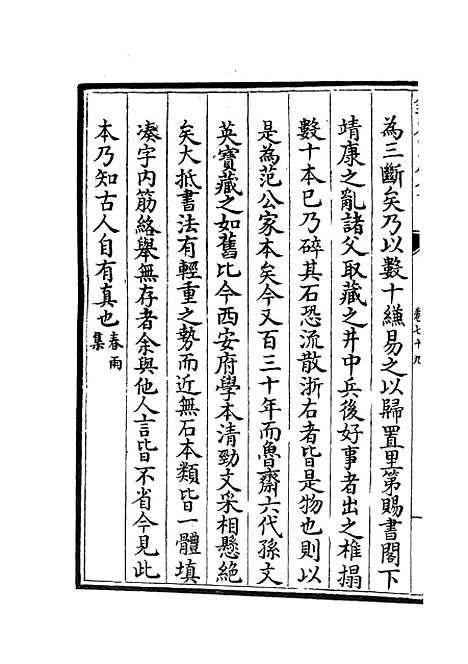 為三斷矣乃以數十縑易之以歸置里第賜書閣下
靖康之亂諸父取藏之井中兵後好事者出之椎搨
數十本已乃碎其石恐流散浙右者皆是物也則以
是為范公家本矣今又百三十年而魯齋六代孫文
英寳藏之如舊比今西安府學本清勁文采相懸絶
矣大抵書法有輕重之勢而近無石本類皆一體填
凑字内筋絡舉無存者余與他人言皆不省今見此
本乃知古人自有真也春雨
集
卷七十九